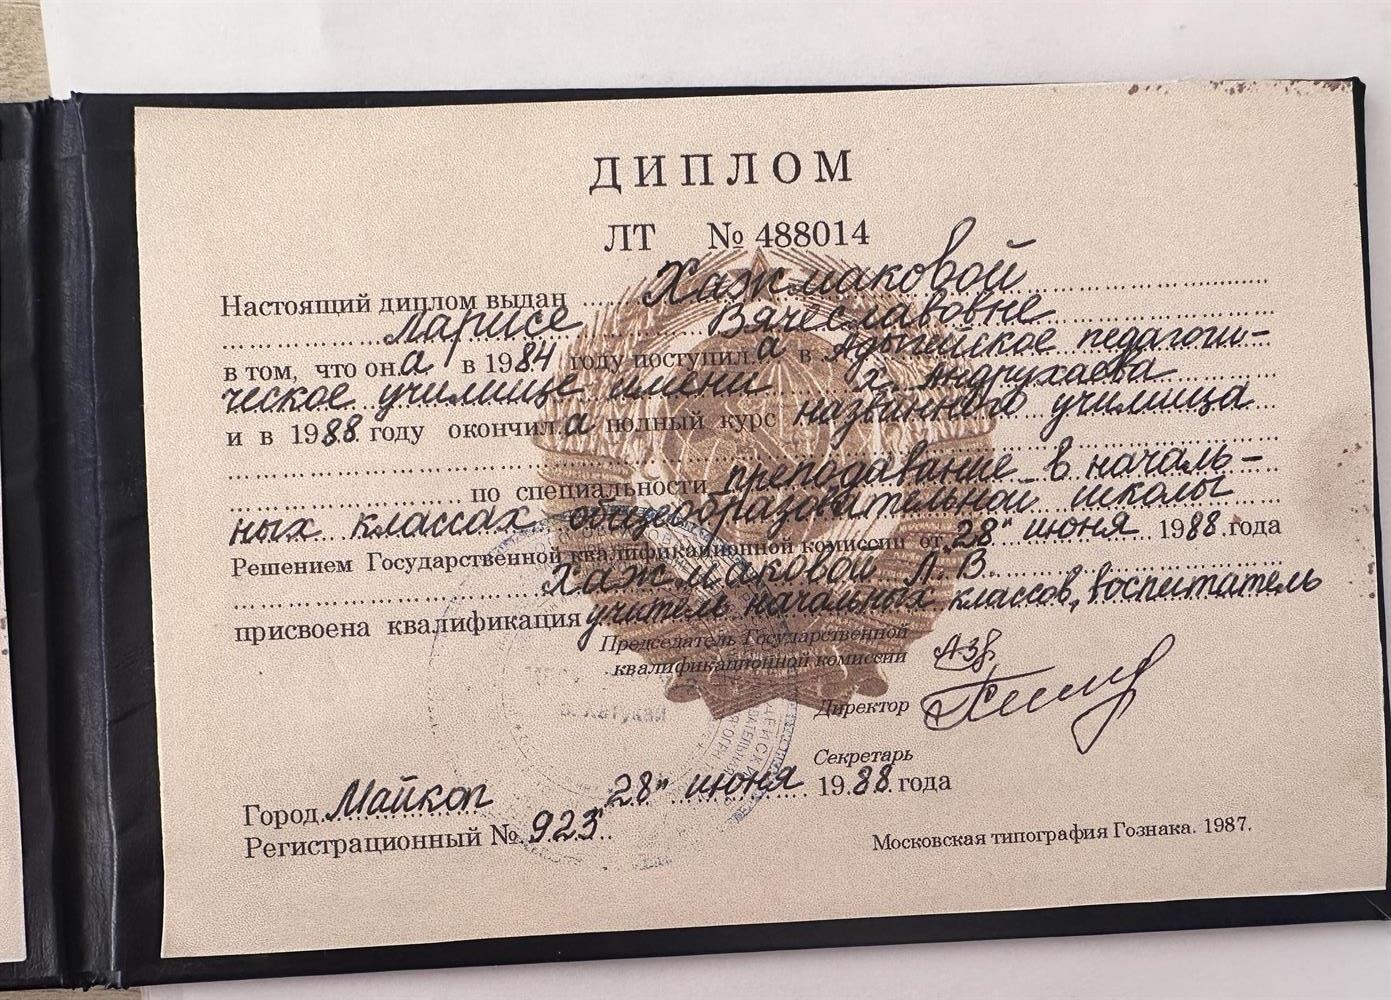 ДИПЛОМ
ЛТ № 488014
Настоящий диплом выдан Хажмаковой
Ларисе Вячеславовне
в том, что она в 1984 году поступила в Адыгейское педагоги-
ческое училище имени Х. Андрухаева
и в 1988 году окончила полный курс названного училища
по специальности преподавание в началь-
ных классах общеобразовательной школы
Решением Государственной квалификационной комиссии от 28" июня 1988 года
Хажмаковой Л. В.
присвоена квалификация учитель начальных классов, воспитатель
Председатель Государственной
квалификационной комиссии
Директор
Секретарь
Город Майкоп 28" июня 1988 года
Регистрационный № 923
Московская типография Гознака. 1987.